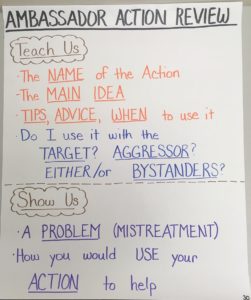 AMBASSADOR ACTION REVIEW
Teach Us
· The NAME of the Action
· The MAIN IDEA
· TIPS, ADVICE, WHEN to use it
· Do I use it with the
TARGET? AGGRESSOR?
EITHER/or BYSTANDERS?
Show Us
· A PROBLEM (MISTREATMENT)
· How you would USE your
ACTION to help